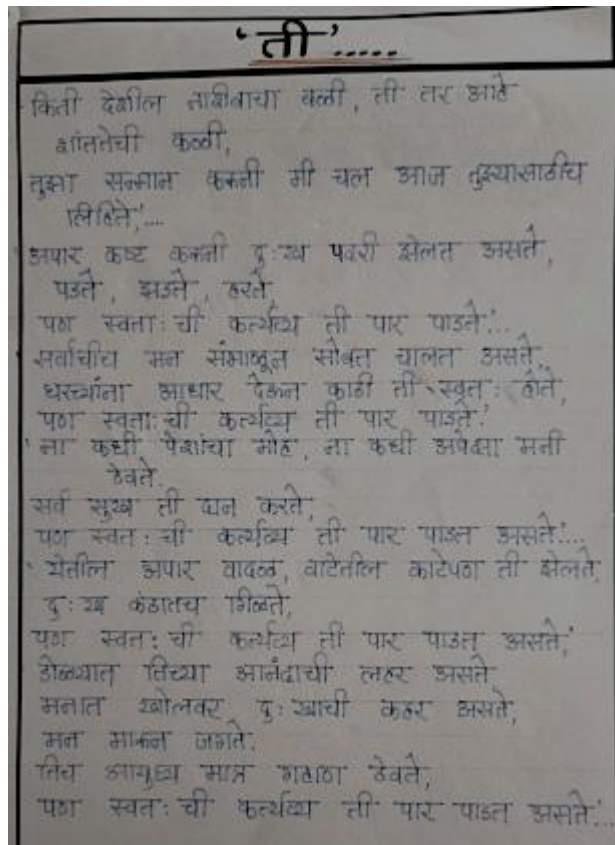 'ती'.....
किती देशील नाशिबाचा बळी, ती तर आहे
शांततेची कळी,
तुझा सन्मान करूनी मी चल आज तुझ्यासाठीच
लिहिते,'....
अपार कष्ट करूनी दु:ख पदरी झेलत असते,
पडते, झडते, हरते,
पण स्वता:ची कर्त्यव्य ती पार पाडते.'...
सर्वांचीच मन संभाळून सोबत चालत असते,
घरच्यांना आधार देऊन काठी ती स्वत: होते,
पण स्वता:ची कर्त्यव्य ती पार पाडते.'
'ना कधी पैशांचा मोह, ना कधी अपेक्षा मनी
ठेवते.
सर्व सुख ती दान करते,
पण स्वत:ची कर्त्यव्य ती पार पाडत असते.'...
'येतील अपार वादळ, वाटेतील काटेपण ती झेलते,
दु:ख कंठातच गिळते,
पण स्वत:ची कर्त्यव्य ती पार पाडत असते,'
डोळ्यात तिच्या आनंदाची लहर असते
मनात खोलवर दु:खाची कहर असते,
मन मारून जगते.
तिच आयुष्य मात्र गहाण ठेवते,
पण स्वत:ची कर्त्यव्य ती पार पाडत असते.'...